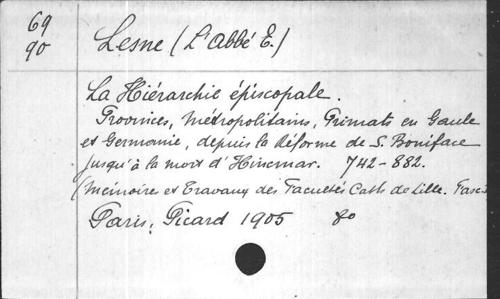 69
90
Lesne (L'abbé E.)
La Hiérarchie épiscopale.
Provinces, Métropolitains, Primats en Gaule
et Germanie, depuis la Réforme de S. Boniface
jusqu'à la mort d'Hincmar. 742-882.
(Mémoire et Travaux des Facultés Cath de Lille. Fasc.
Paris, Picard 1905 8o